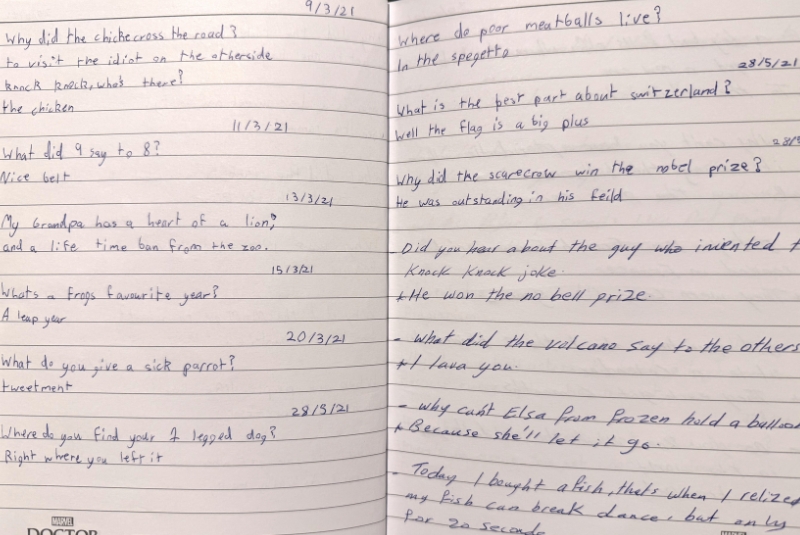 9/3/21
Why did the chickecross the road?
to visit the idiot on the otherside
knock knock, who's there?
the chicken
11/3/21
What did 9 say to 8?
Nice belt
13/3/21
My Grandpa has a heart of a lion,
and a life time ban from the zoo.
15/3/21
Whats a frogs favourite year?
A leap year
20/3/21
What do you give a sick parrot?
tweetment
28/5/21
Where do you find your 1 legged dog?
Right where you left it
MARVEL
DOCTOR
Where do poor meatballs live?
In the spegetto
28/5/21
What is the best part about switzerland?
Well the flag is a big plus
28/
Why did the scarecrow win the nobel prize?
He was outstanding in his feild
- Did you hear about the guy who invented t
Knock Knock joke.
+ He won the no bell prize.
- what did the volcano say to the others
+ I lava you.
- why can't Elsa from Frozen hold a balloon
+ Because she'll let it go.
- Today I bought a fish, thats when I relized
my fish can break dance, but only
for 20 seconds
MARVEL